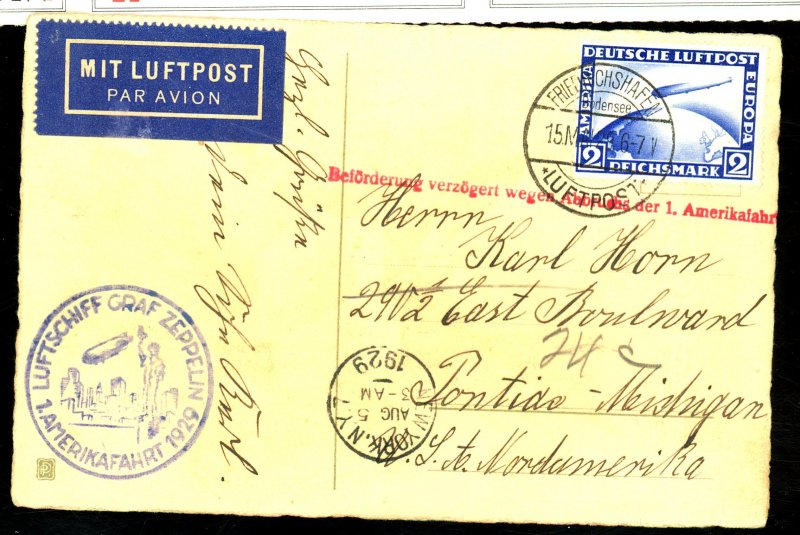 MIT LUFTPOST
PAR AVION
DEUTSCHE LUFTPOST
AMERIKA
EUROPA
2 REICHSMARK 2
FRIEDRICHSHAFEN
Bodensee
15.M 6-7 V
*LUFTPOST*
Beförderung verzögert wegen Abbruchs der 1. Amerikafahrt
Herrn
Karl Horn
2902 East Boulward
24 c
Pontiac - Mishigan
U. S. A. Nordamerika
NEW YORK, N.Y.
AUG 5
3-AM
1929
LUFTSCHIFF GRAF ZEPPELIN
1. AMERIKAFAHRT 1929